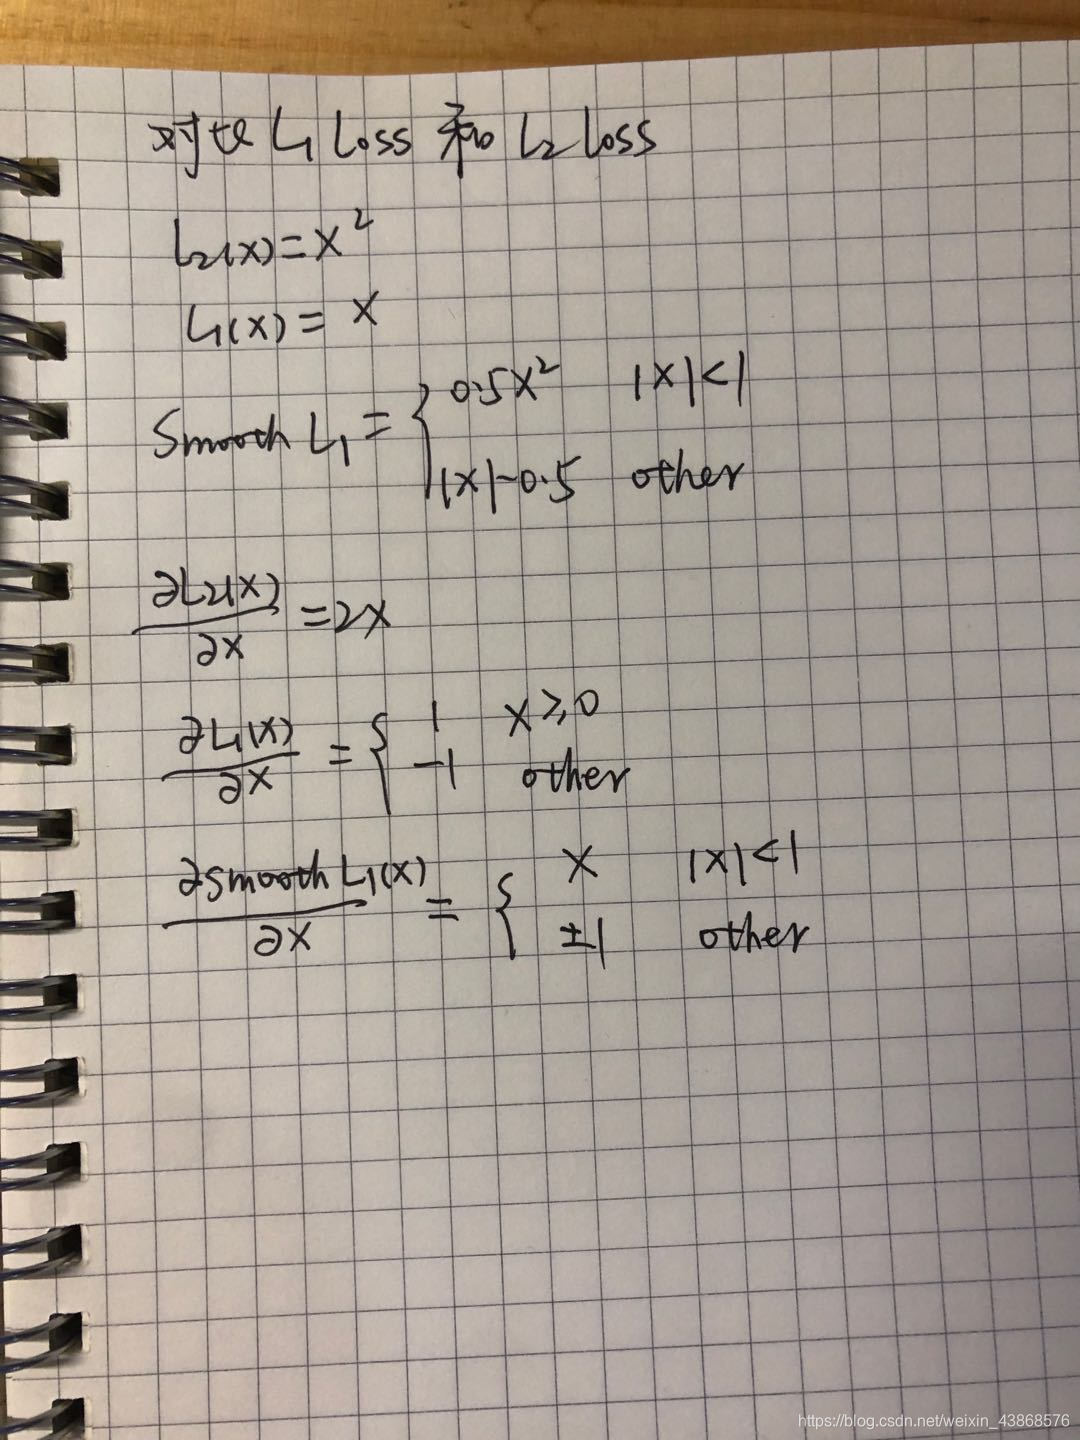 对比 L1 Loss 和 L2 Loss
L2(x)=x²
L1(x)= x
Smooth L1 = { 0.5x² |x|<1
|x|-0.5 other
∂L2(x)/∂x =2x
∂L1(x)/∂x = { 1 x≥0
-1 other
∂smooth L1(x)/∂x = { x |x|<1
±1 other
https://blog.csdn.net/weixin_43868576